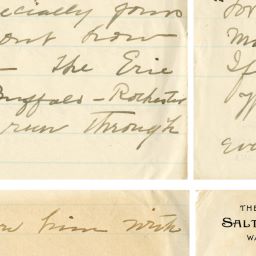 ecially from
out how
- the Erie
Buffalo - Rochester
run through
for
M
If
eve
him with
THE
SALT
WA